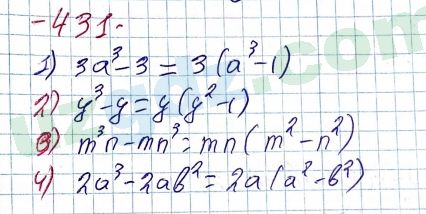 -431.
1) 3a³-3 = 3(a³-1)
2) y³-y = y(y²-1)
3) m³n-mn³ = mn(m²-n²)
4) 2a³-2ab² = 2a(a²-b²)